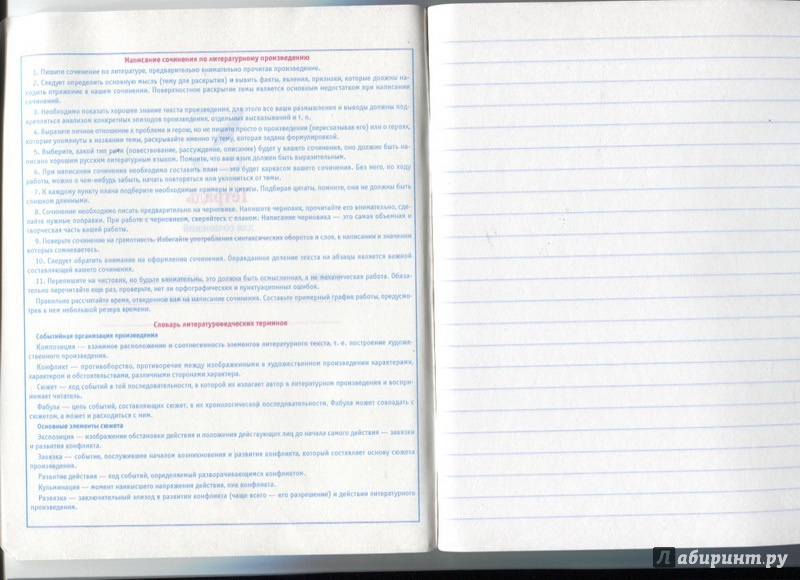 Написание сочинения по литературному произведению
1. Пишите сочинение по литературе, предварительно внимательно прочитав произведение.
2. Следует определить основную мысль (тему для раскрытия) и выявить факты, явления, признаки, которые должны на-
ходить отражение в нашем сочинении. Поверхностное раскрытие темы является основным недостатком при написании
сочинений.
3. Необходимо показать хорошее знание текста произведения, для этого все ваши размышления и выводы должны под-
крепляться анализом конкретных эпизодов произведения, отдельных высказываний и т. п.
4. Выразите личное отношение к проблеме и герою, но не пишите просто о произведении (пересказывая его) или о героях,
которые упомянуты в названии темы, раскрывайте именно ту тему, которая задана формулировкой.
5. Выберите, какой тип речи (повествование, рассуждение, описание) будет у вашего сочинения, оно должно быть на-
писано хорошим русским литературным языком. Помните, что ваш язык должен быть выразительным.
6. При написании сочинения необходимо составить план — это будет каркасом вашего сочинения. Без него, по ходу
работы, можно о чем-нибудь забыть, начать повторяться или уклониться от темы.
7. К каждому пункту плана подберите необходимые примеры и цитаты. Подбирая цитаты, помните, они не должны быть
слишком длинными.
8. Сочинение необходимо писать предварительно на черновике. Напишите черновик, прочитайте его внимательно, сде-
лайте нужные поправки. При работе с черновиком, сверяйтесь с планом. Написание черновика — это самая объемная и
творческая часть вашей работы.
9. Поверьте сочинение на грамотность. Избегайте употребления синтаксических оборотов и слов, в написании и значении
которых сомневаетесь.
10. Следует обратить внимание на оформление сочинения. Оправданное деление текста на абзацы является важной
составляющей вашего сочинения.
11. Перепишите на чистовик, но будьте внимательны, это должна быть осмысленная, а не механическая работа. Обяза-
тельно перечитайте еще раз, проверьте, нет ли орфографических и пунктуационных ошибок.
Правильно рассчитайте время, отведенное вам на написание сочинения. Составьте примерный график работы, предусмо-
трев в нем небольшой резерв времени.
Словарь литературоведческих терминов
Событийная организация произведения
Композиция — взаимное расположение и соотнесенность элементов литературного текста, т. е. построение художе-
ственного произведения.
Конфликт — противоборство, противоречие между изображенными в художественном произведении характерами,
характером и обстоятельствами, различными сторонами характера.
Сюжет — ход событий в той последовательности, в которой их излагает автор в литературном произведении и воспри-
нимает читатель.
Фабула — цепь событий, составляющих сюжет, в их хронологической последовательности. Фабула может совпадать с
сюжетом, а может и расходиться с ним.
Основные элементы сюжета
Экспозиция — изображение обстановки действия и положения действующих лиц до начала самого действия — завязки
и развития конфликта.
Завязка — событие, послужившее началом возникновения и развития конфликта, который составляет основу сюжета
произведения.
Развитие действия — ход событий, определяемый разворачивающимся конфликтом.
Кульминация — момент наивысшего напряжения действия, пик конфликта.
Развязка — заключительный эпизод в развитии конфликта (чаще всего — его разрешение) и действии литературного
произведения.
Лабиринт.ру